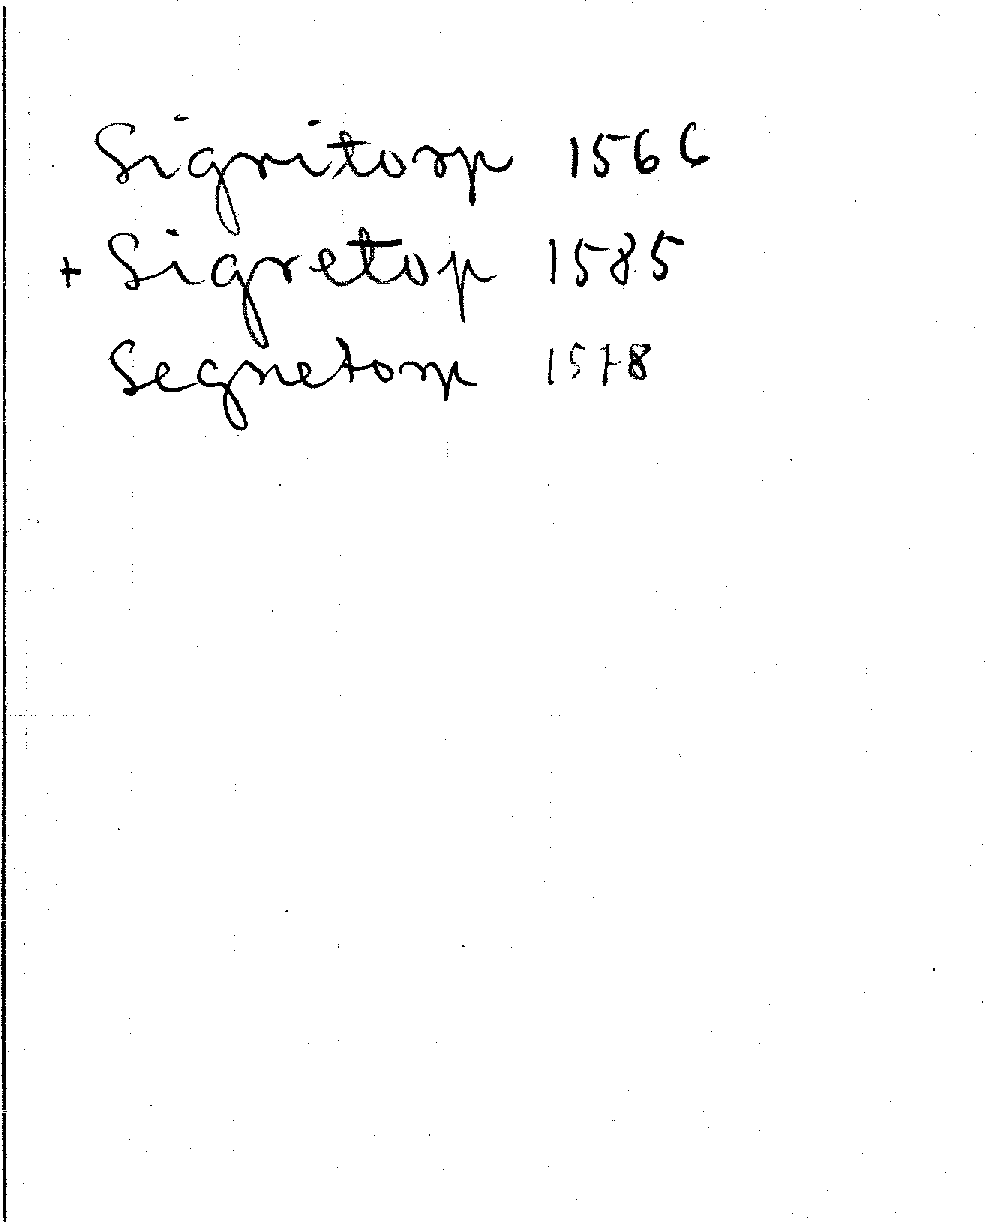 Sigritorp 1566
+ Sigretop 1585
Segnetorp 1578